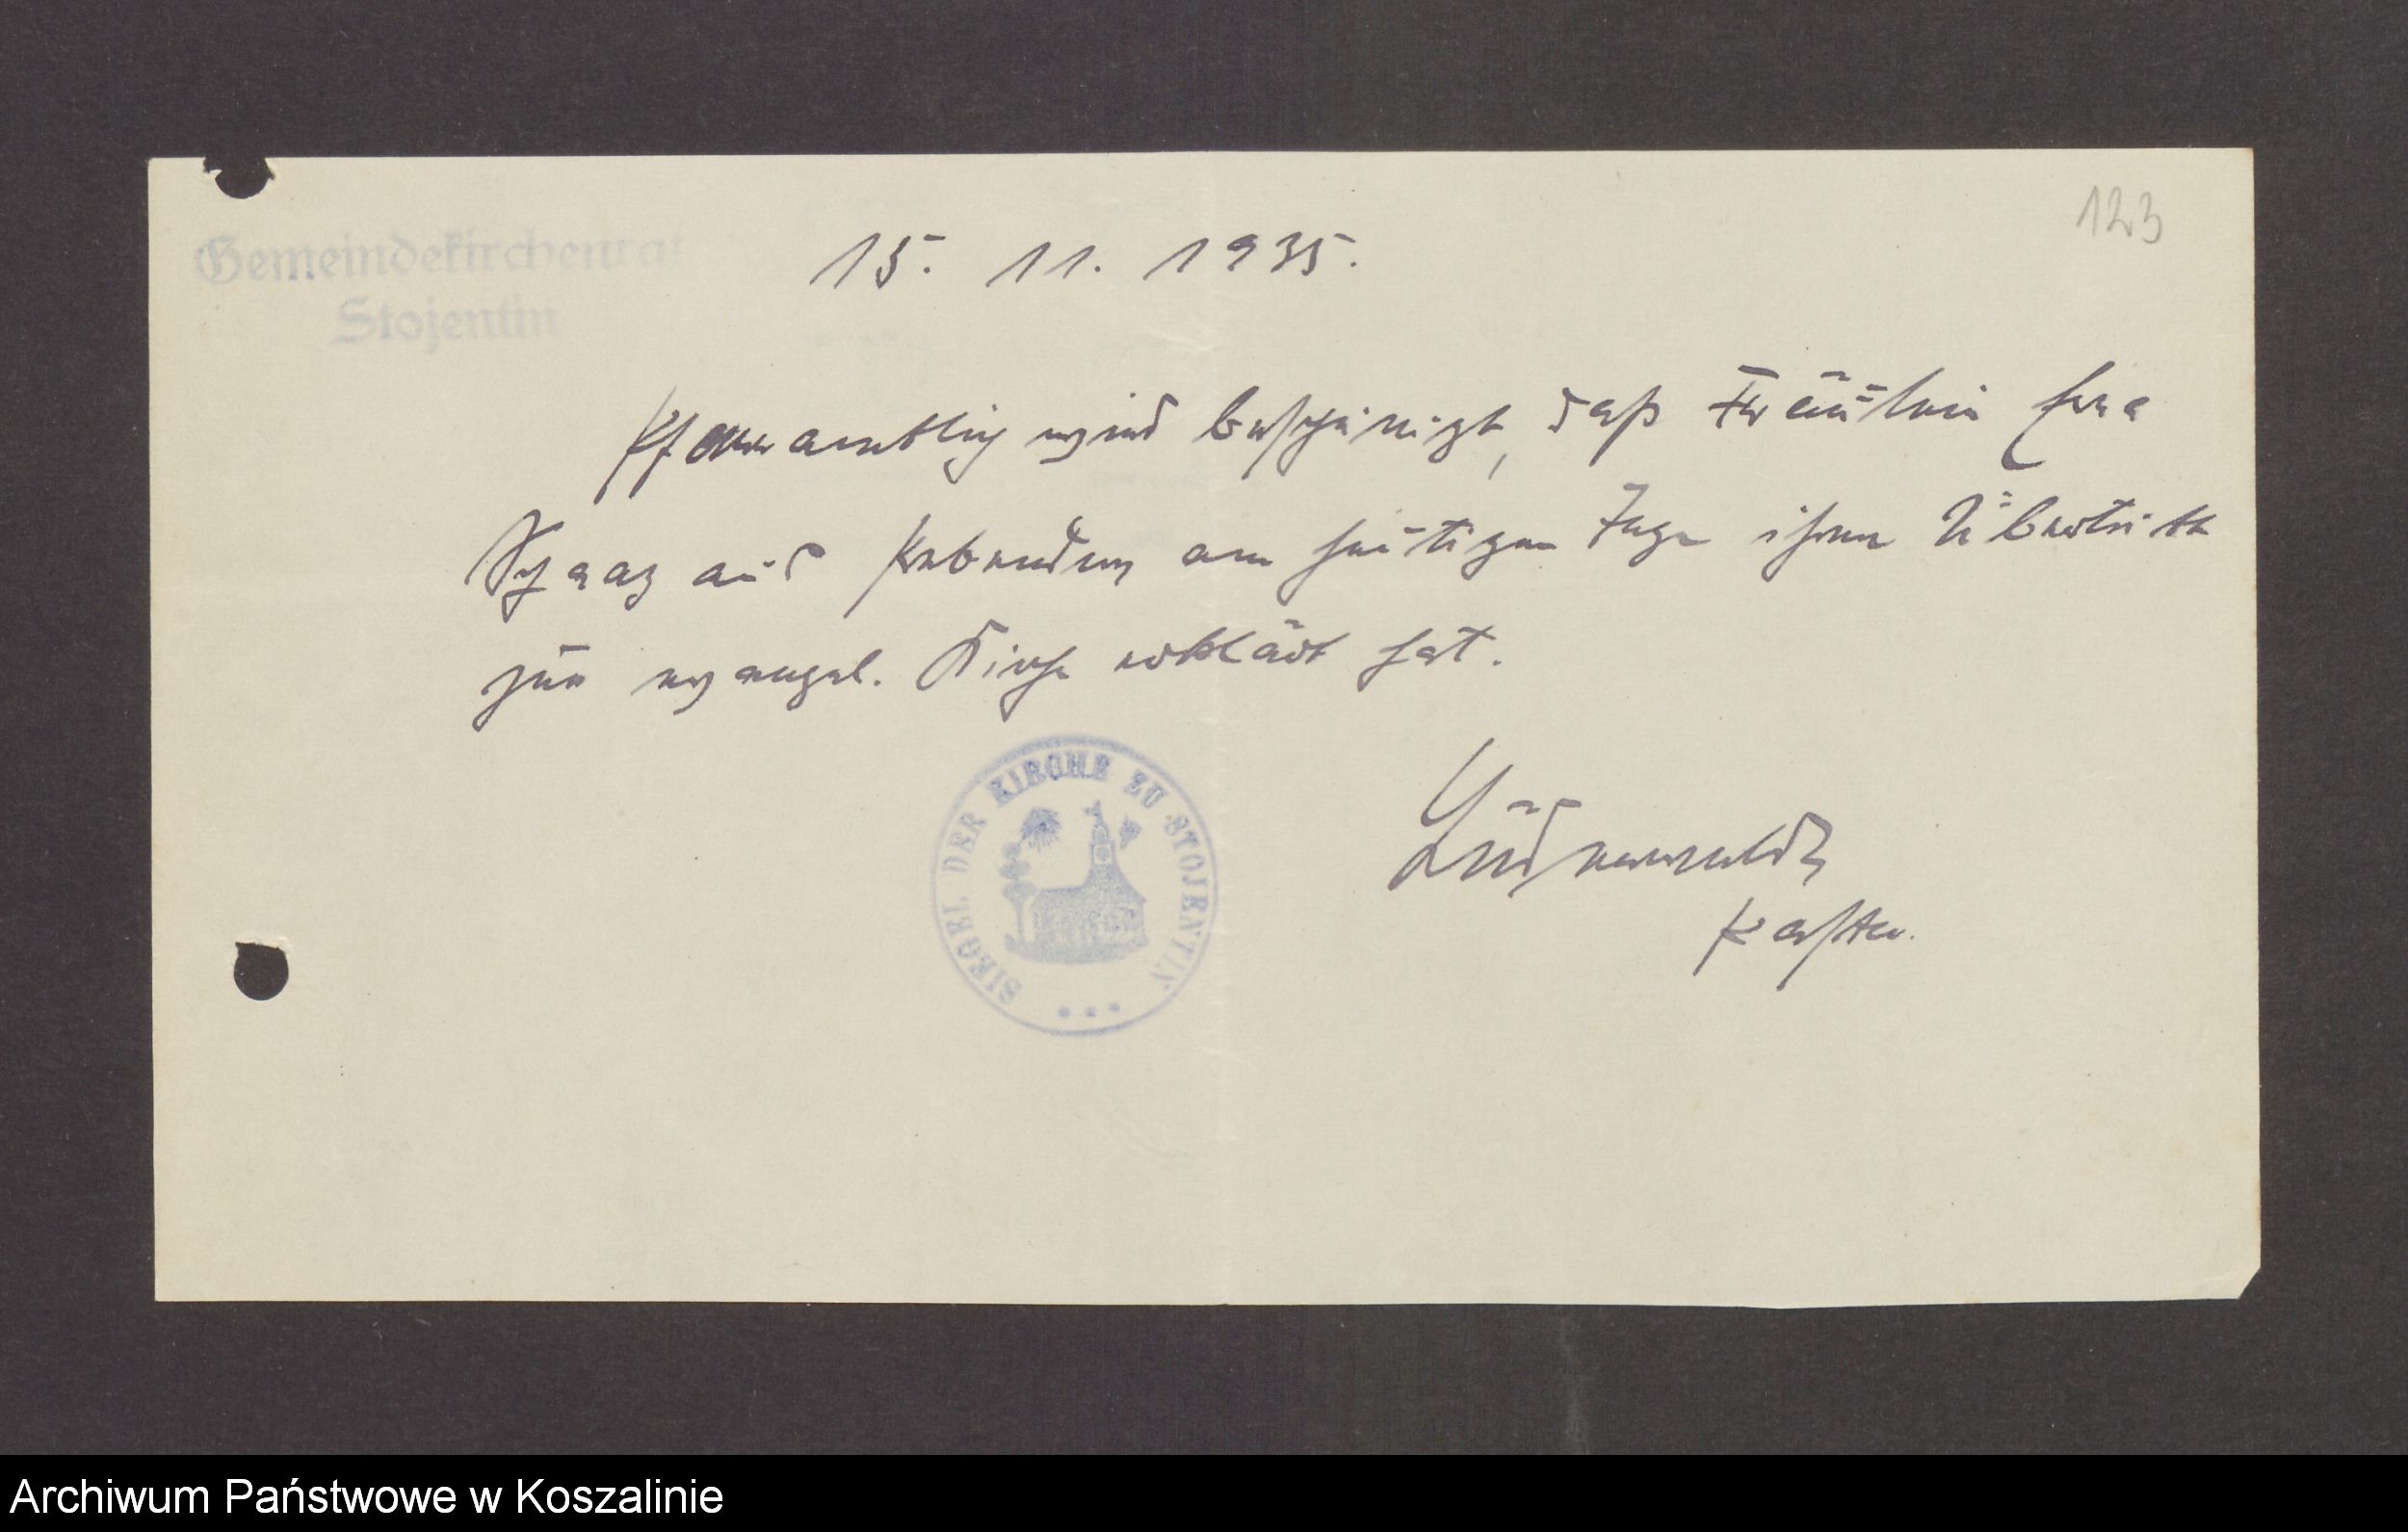 123
Gemeindekirchenrat
Stojentin
15. 11. 1935.
Pfarramtlich wird bescheinigt, daß Fräulein
aus am heutigen Tage ihren Übertritt
zur evangel. Kirche erklärt hat.
SIEGEL DER KIRCHE ZU STOJENTIN
Pastor.
Archiwum Państwowe w Koszalinie